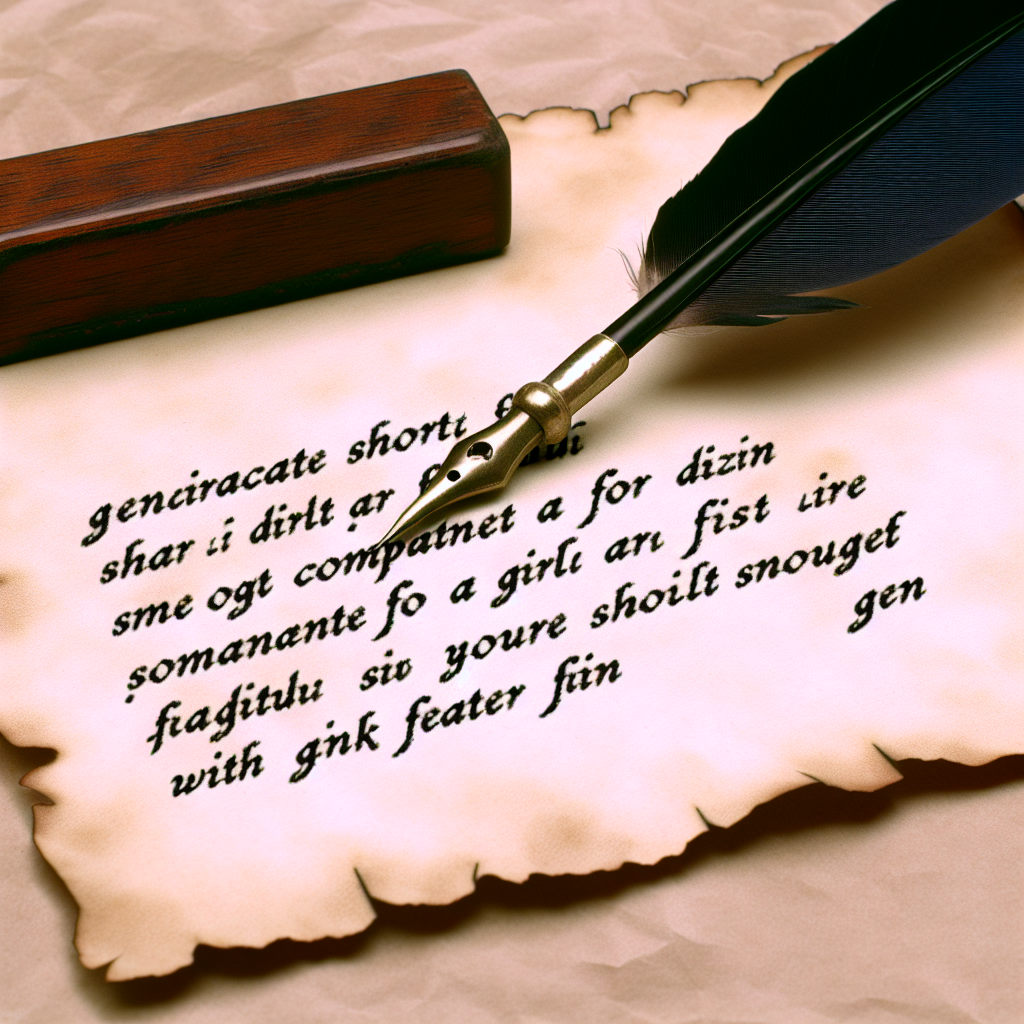 genciracate short
shar dirlt ar
sme ogt compatnet a for dizin
somanante fo a girlt art fist ire
fiagitdu sie youre shoilt snouget
with gink feater fin gen